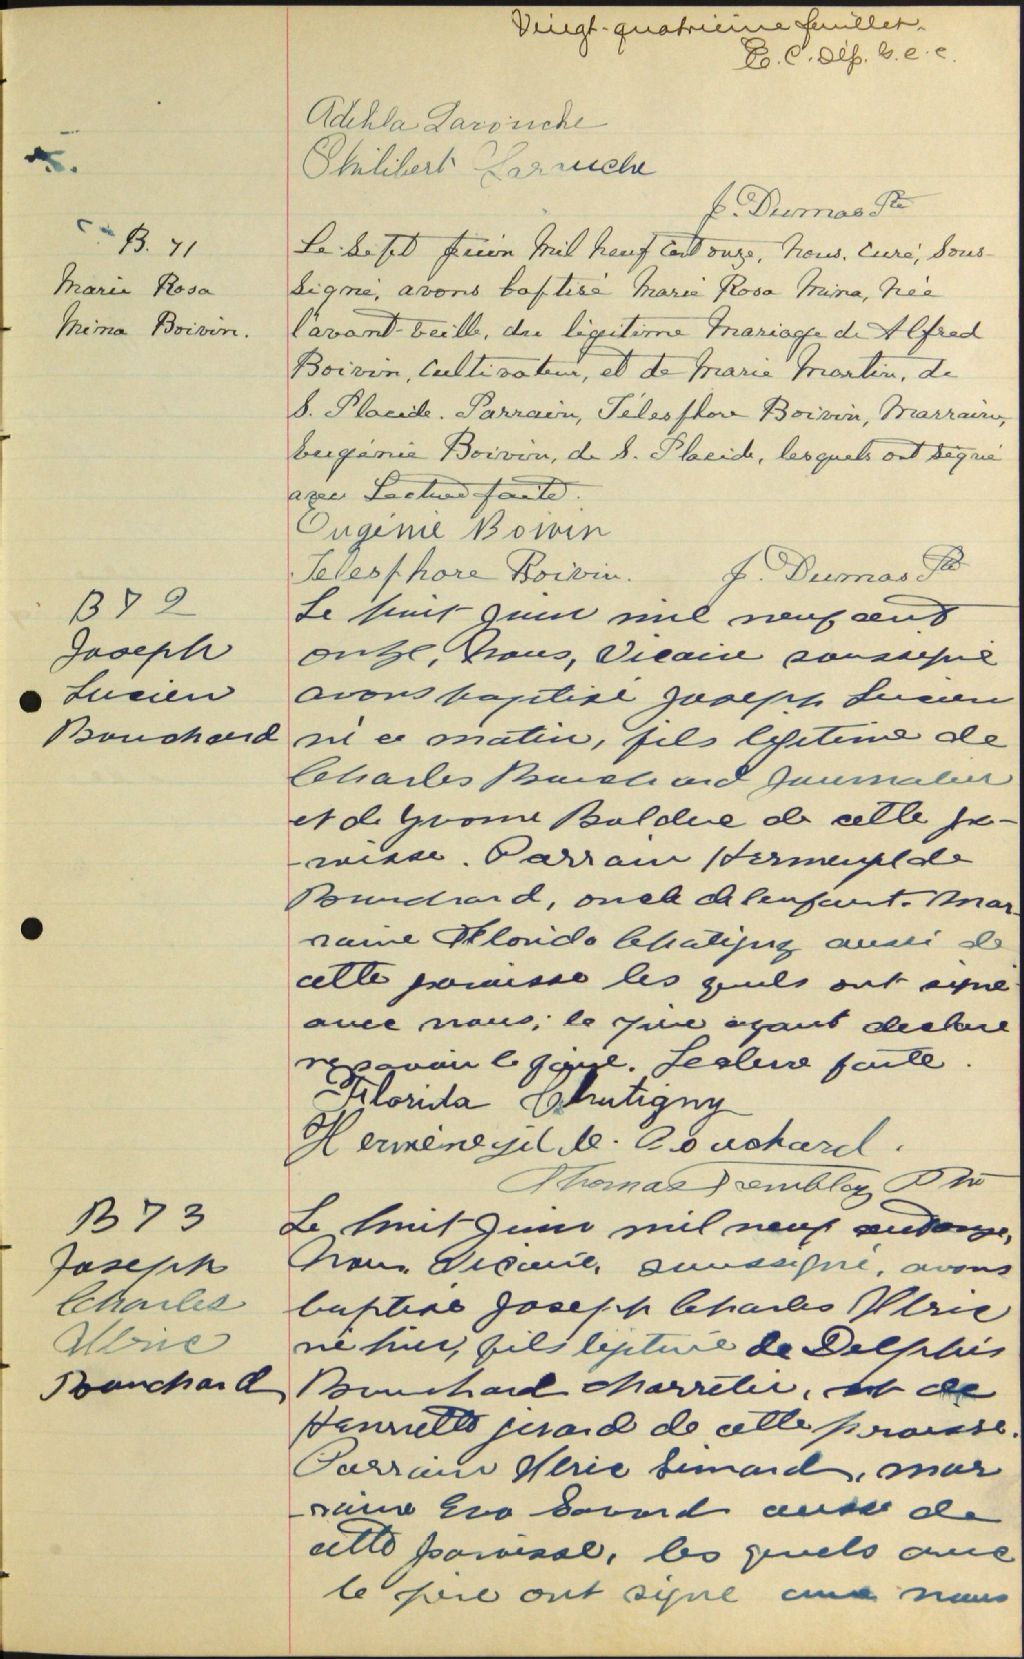 Vingt-quatrième feuillet.
E. C. Dép. G. C. C.
Adehla Larouche
Philibert Larouche
J. Dumas Ptr
B. 71
Marie Rosa
Mina Boivin.
Le sept juin mil neuf cent onze, nous, curé, sous-
signé, avons baptisé Marie Rosa Mina, née
l'avant-veille, du légitime mariage de Alfred
Boivin, cultivateur, et de Marie Martin, de
S. Placide. Parrain, Télesphore Boivin, Marraine,
Eugénie Boivin, de S. Placide, lesquels ont signé
avec Lecture faite.
Eugénie Boivin
Telesphore Boivin. J. Dumas Ptr
B 72
Joseph
Lucien
Bouchard
Le huit Juin mil neuf cent
onze, Nous, Vicaire soussigné
avons baptisé Joseph Lucien
né ce matin, fils légitime de
Charles Bouchard Journalier
et de Yvonne Bolduc de cette pa-
-roisse. Parrain Hermenegilde
Bouchard, oncle de l'enfant. Mar-
raine Florida Chatigny aussi de
cette paroisse les quels ont signé
avec nous; le père ayant declaré
ne savoir le faire. Lecture faite.
Florida Chatigny
Herménegilde. Bouchard.
Thomas Tremblay Ptre
B 73
Joseph
Charles
Ulric
Bouchard
Le huit Juin mil neuf cent onze,
Nous Vicaire, soussigné, avons
baptisé Joseph Charles Ulric
né hier, fils légitime de Delphis
Bouchard charretier, et de
Henriette Girard de cette paroisse.
Parrain Ulric Simard, mar
-raine Eva Savard aussi de
cette paroisse, les quels avec
le père ont signé avec nous